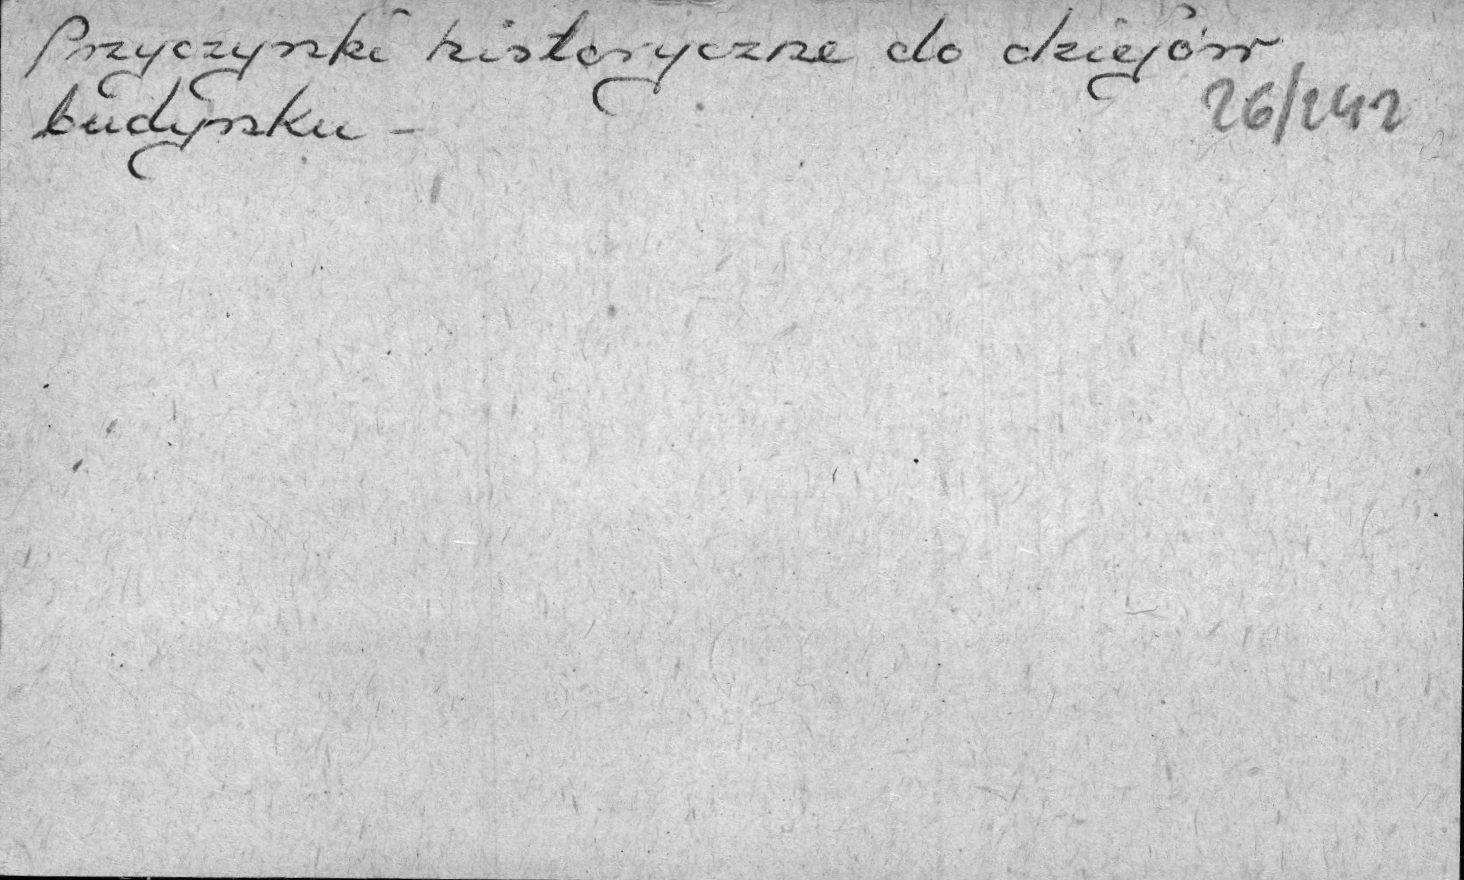 Przyczynki historyczne do dziejów
budynku -
26/242